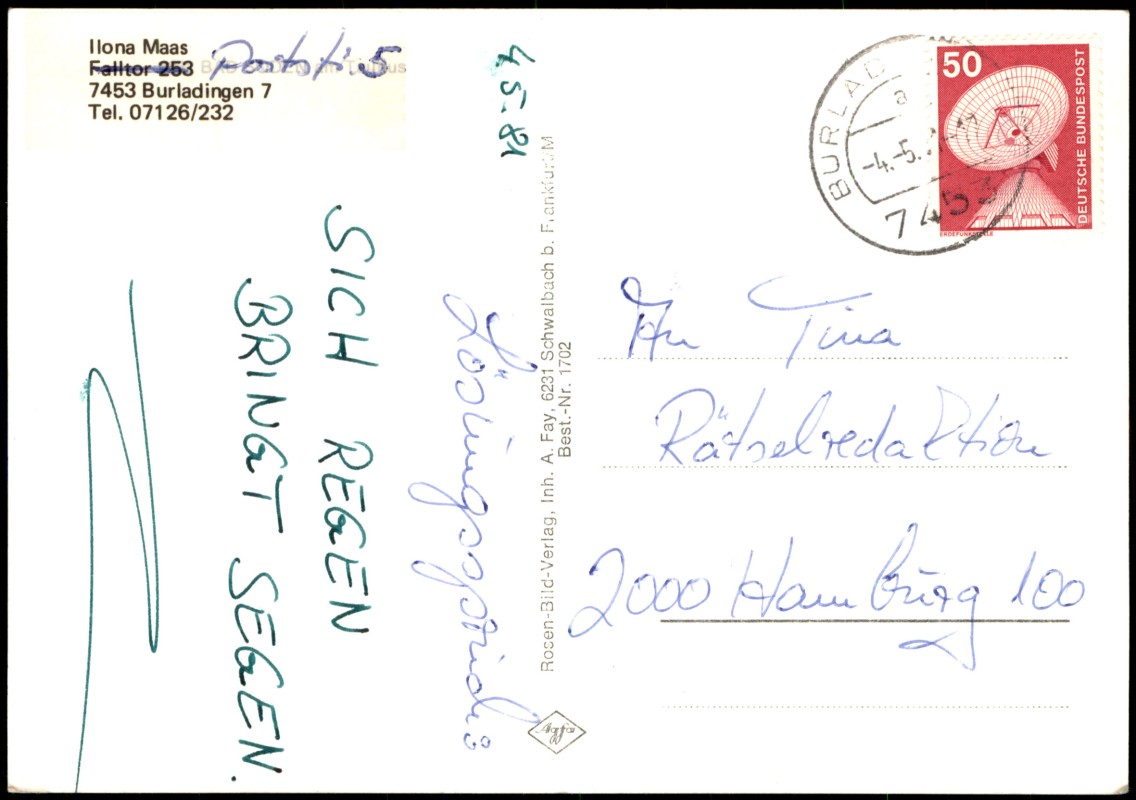 Ilona Maas
Falltor 253
7453 Burladingen 7
Tel. 07126/232
4.5.81
Lösungsspruch:
SICH REGEN
BRINGT SEGEN.
Rosen-Bild-Verlag, Inh. A. Fay, 6231 Schwalbach b. Frankfurt/M
Best.-Nr. 1702
BURLAD
a
-4.-5.
7453
50
DEUTSCHE BUNDESPOST
ERDEFUNKSTELLE
An Tina
Rätselredaktion
2000 Hamburg 100